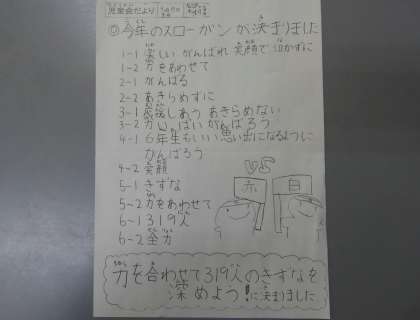 児童会だより
◎今年のスローガンが決まりました
1-1 楽しい がんばれ 笑顔で 泣かずに
1-2 力をあわせて
2-1 がんばる
2-2 あきらめずに
3-1 応援しあう あきらめない
3-2 力いっぱい がんばろう
4-1 6年生もいい思い出になるように
がんばろう
4-2 笑顔
5-1 きずな
5-2 力をあわせて
6-1 319人
6-2 全力
VS
赤 白
力を合わせて319人のきずなを
深めよう!に決まりました